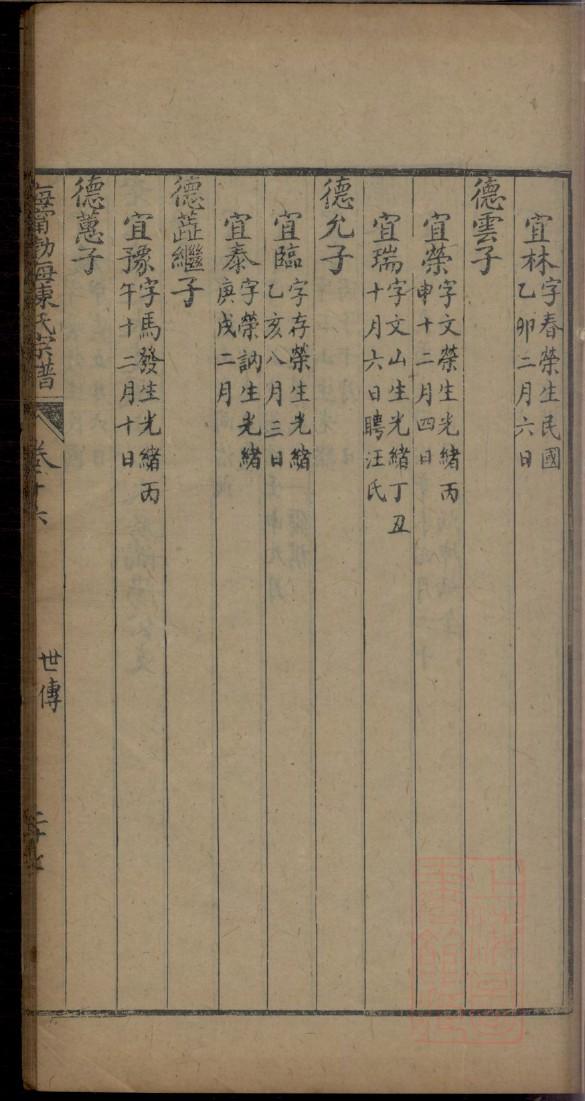 宜林字春榮生民國
乙卯二月六日
德雲子
宜榮字文榮生光緒丙
申十二月四日
宜瑞字文山生光緒丁丑
十月六日聘汪氏
德允子
宜臨字存榮生光緒
乙亥八月三日
宜泰字榮訥生光緒
庚戌二月
德芷繼子
宜豫字馬發生光緒丙
午十二月十日
德蕙子
海甯渤海陳氏宗譜
卷十六
世傳